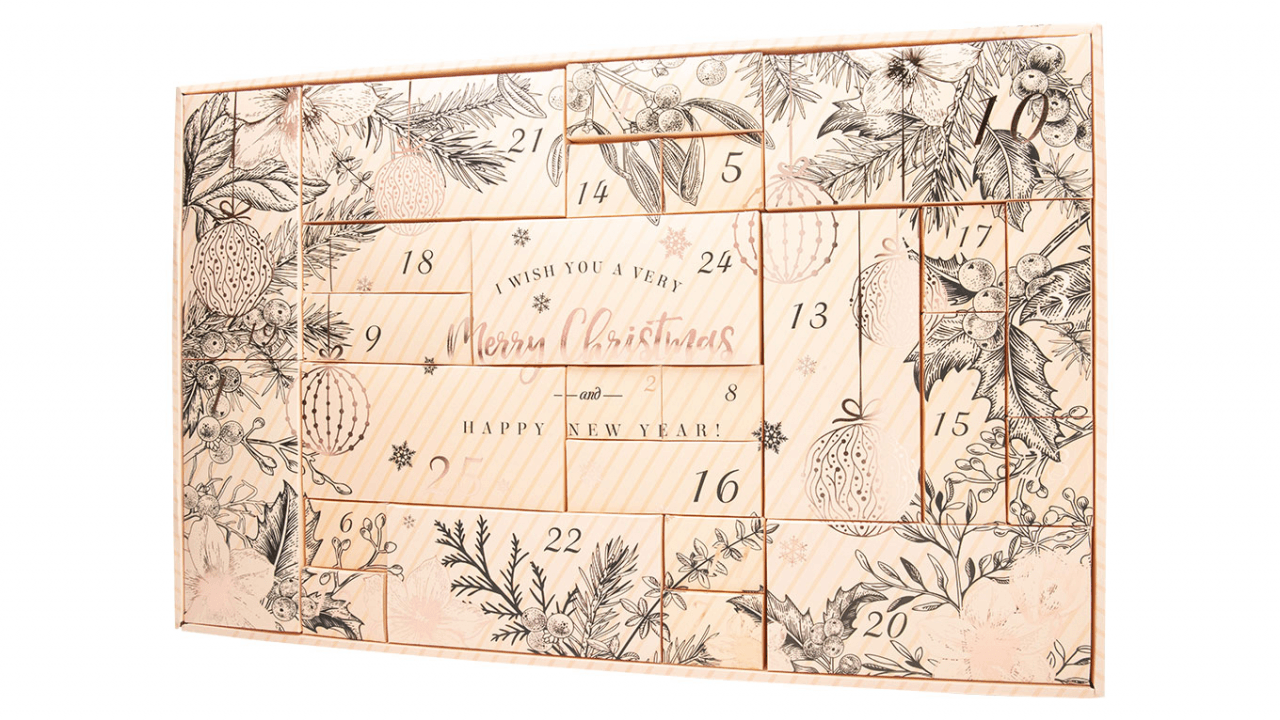 21
14
5
10
18
I WISH YOU A VERY
24
17
9
Merry Christmas
13
2
8
and
HAPPY NEW YEAR!
15
25
16
6
22
20